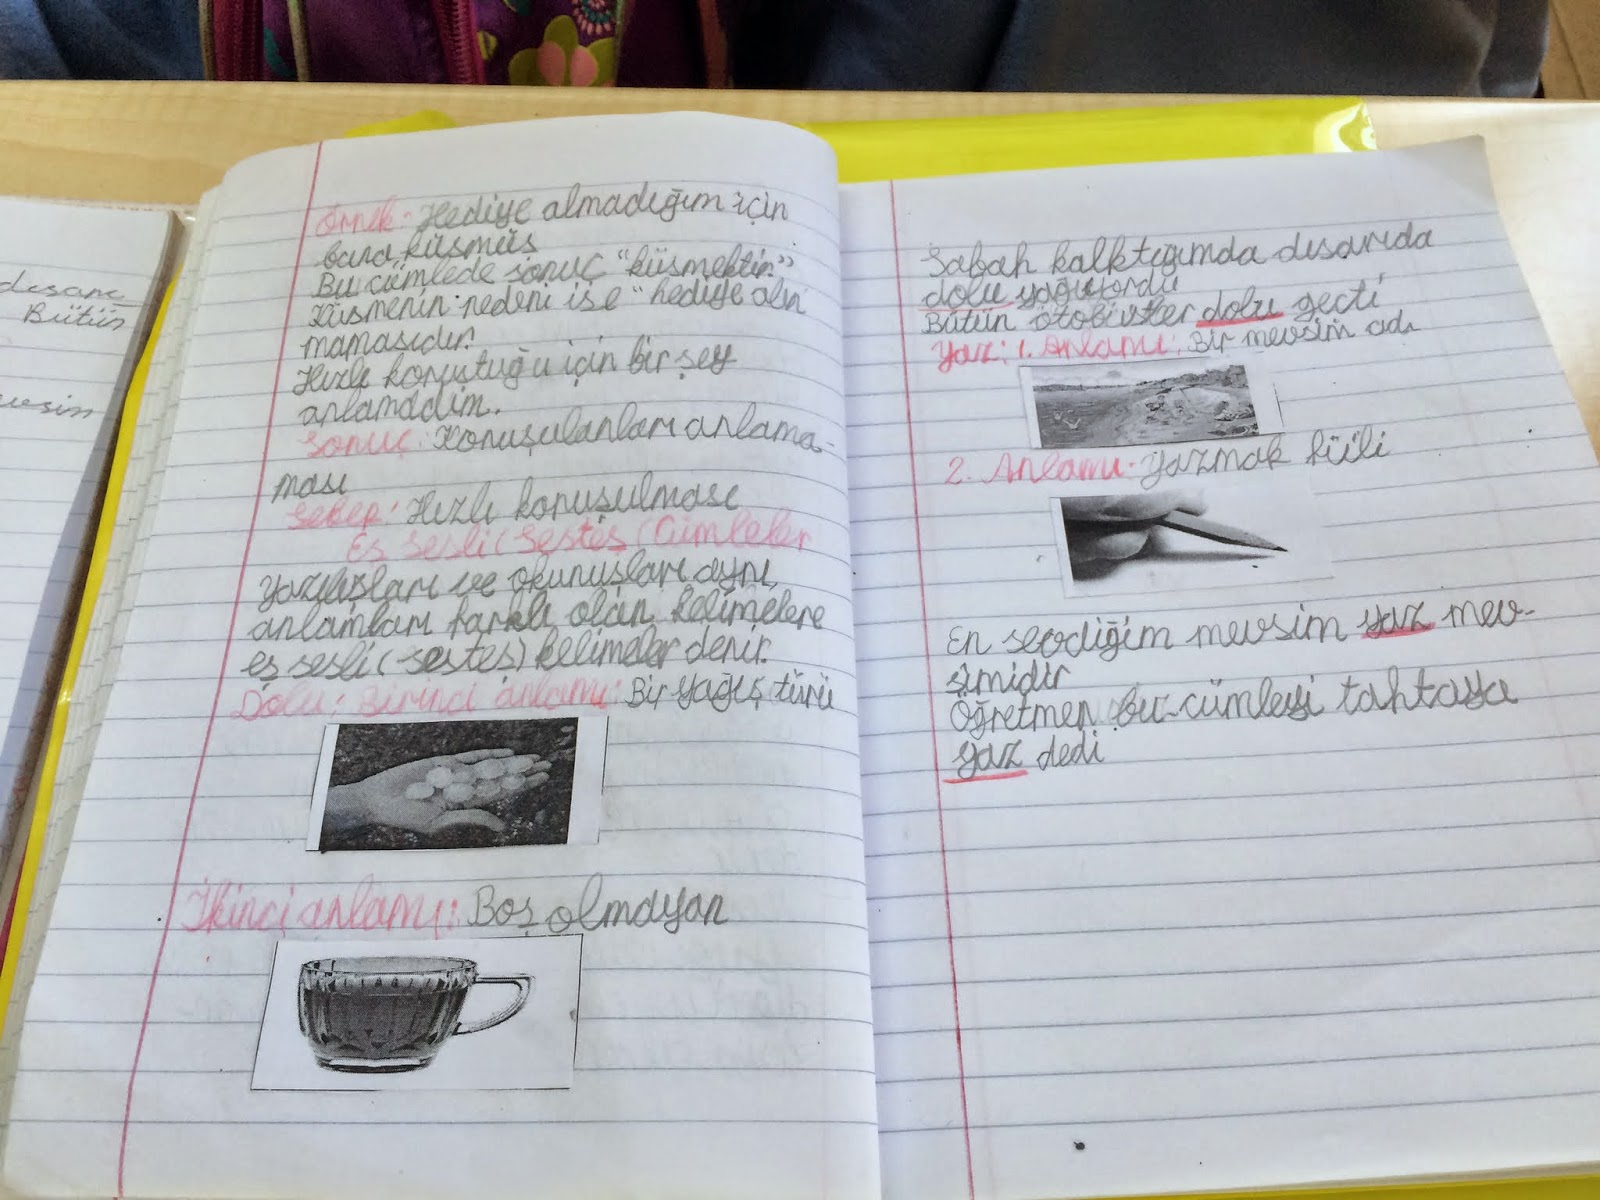 desarı
Bütün
evsim
Örnek: Hediye almadığım için
bana küsmüs
Bu cümlede sonuç "küsmektir"
Küsmenin nedeni ise "hediye alın
mamasıdır.
Hızlı konuştuğu için bir şey
anlamddım.
Sonuç: Konuşulanları anlama-
ması
Sebep: Hızlı konuşulması
Eş sesli (Sesteş) Cümleler
Yazılışları ve okunuşları aynı,
anlamları farklı olan kelimelere
eş sesli (sesteş) kelimeler denir.
Dolu: Birinci anlamı: Bir yağış türü
İkinci anlamı: Boş olmayan
Sabah kalktığımda dısarıda
dolu yağıyordu
Bütün otobüsler dolu geçti
Yaz: 1. Anlamı: Bir mevsim adı
2. Anlamı: Yazmak fiili
En sevdiğim mevsim yaz mev-
simidir
Öğretmen bu cümleyi tahtaya
yaz dedi